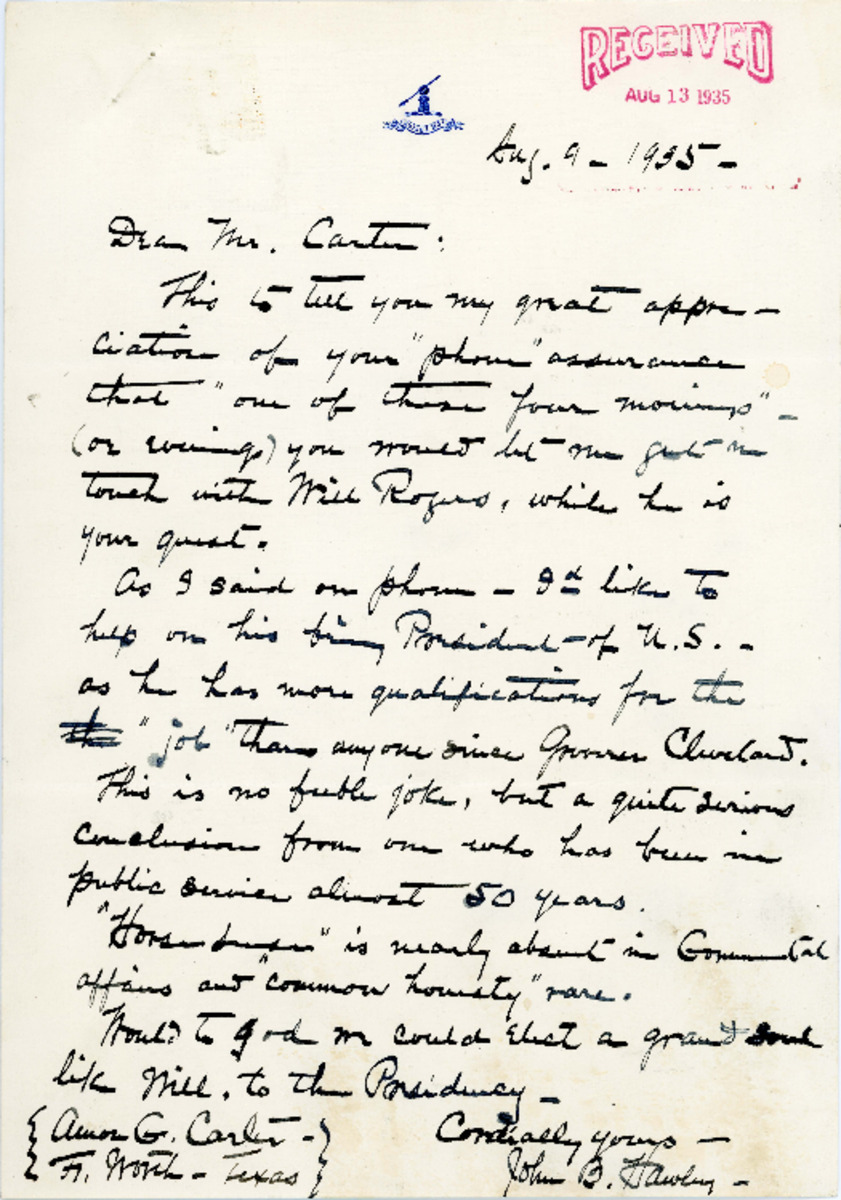 RECEIVED
AUG 13 1935
Aug. 9 - 1935 -
Dear Mr. Carter:
This to tell you my great appre-
ciation of your "phone" assurance
that "one of these four mornings" -
(or evenings) you would let me get in
touch with Will Rogers, while he is
your guest.
As I said on phone - I'd like to
help on his being President - of U.S. -
as he has more qualifications for the
the "job" than anyone since Grover Cleveland.
This is no feeble joke, but a quite serious
conclusion from one who has been in
public service almost 50 years.
"Horse sense" is nearly absent in Governmental
affairs and "common honesty" rare.
Would to God we could elect a grand soul
like Will, to the Presidency -
{ Amon G. Carter - } Cordially yours -
{ Ft. Worth - Texas } John B. Hawley -